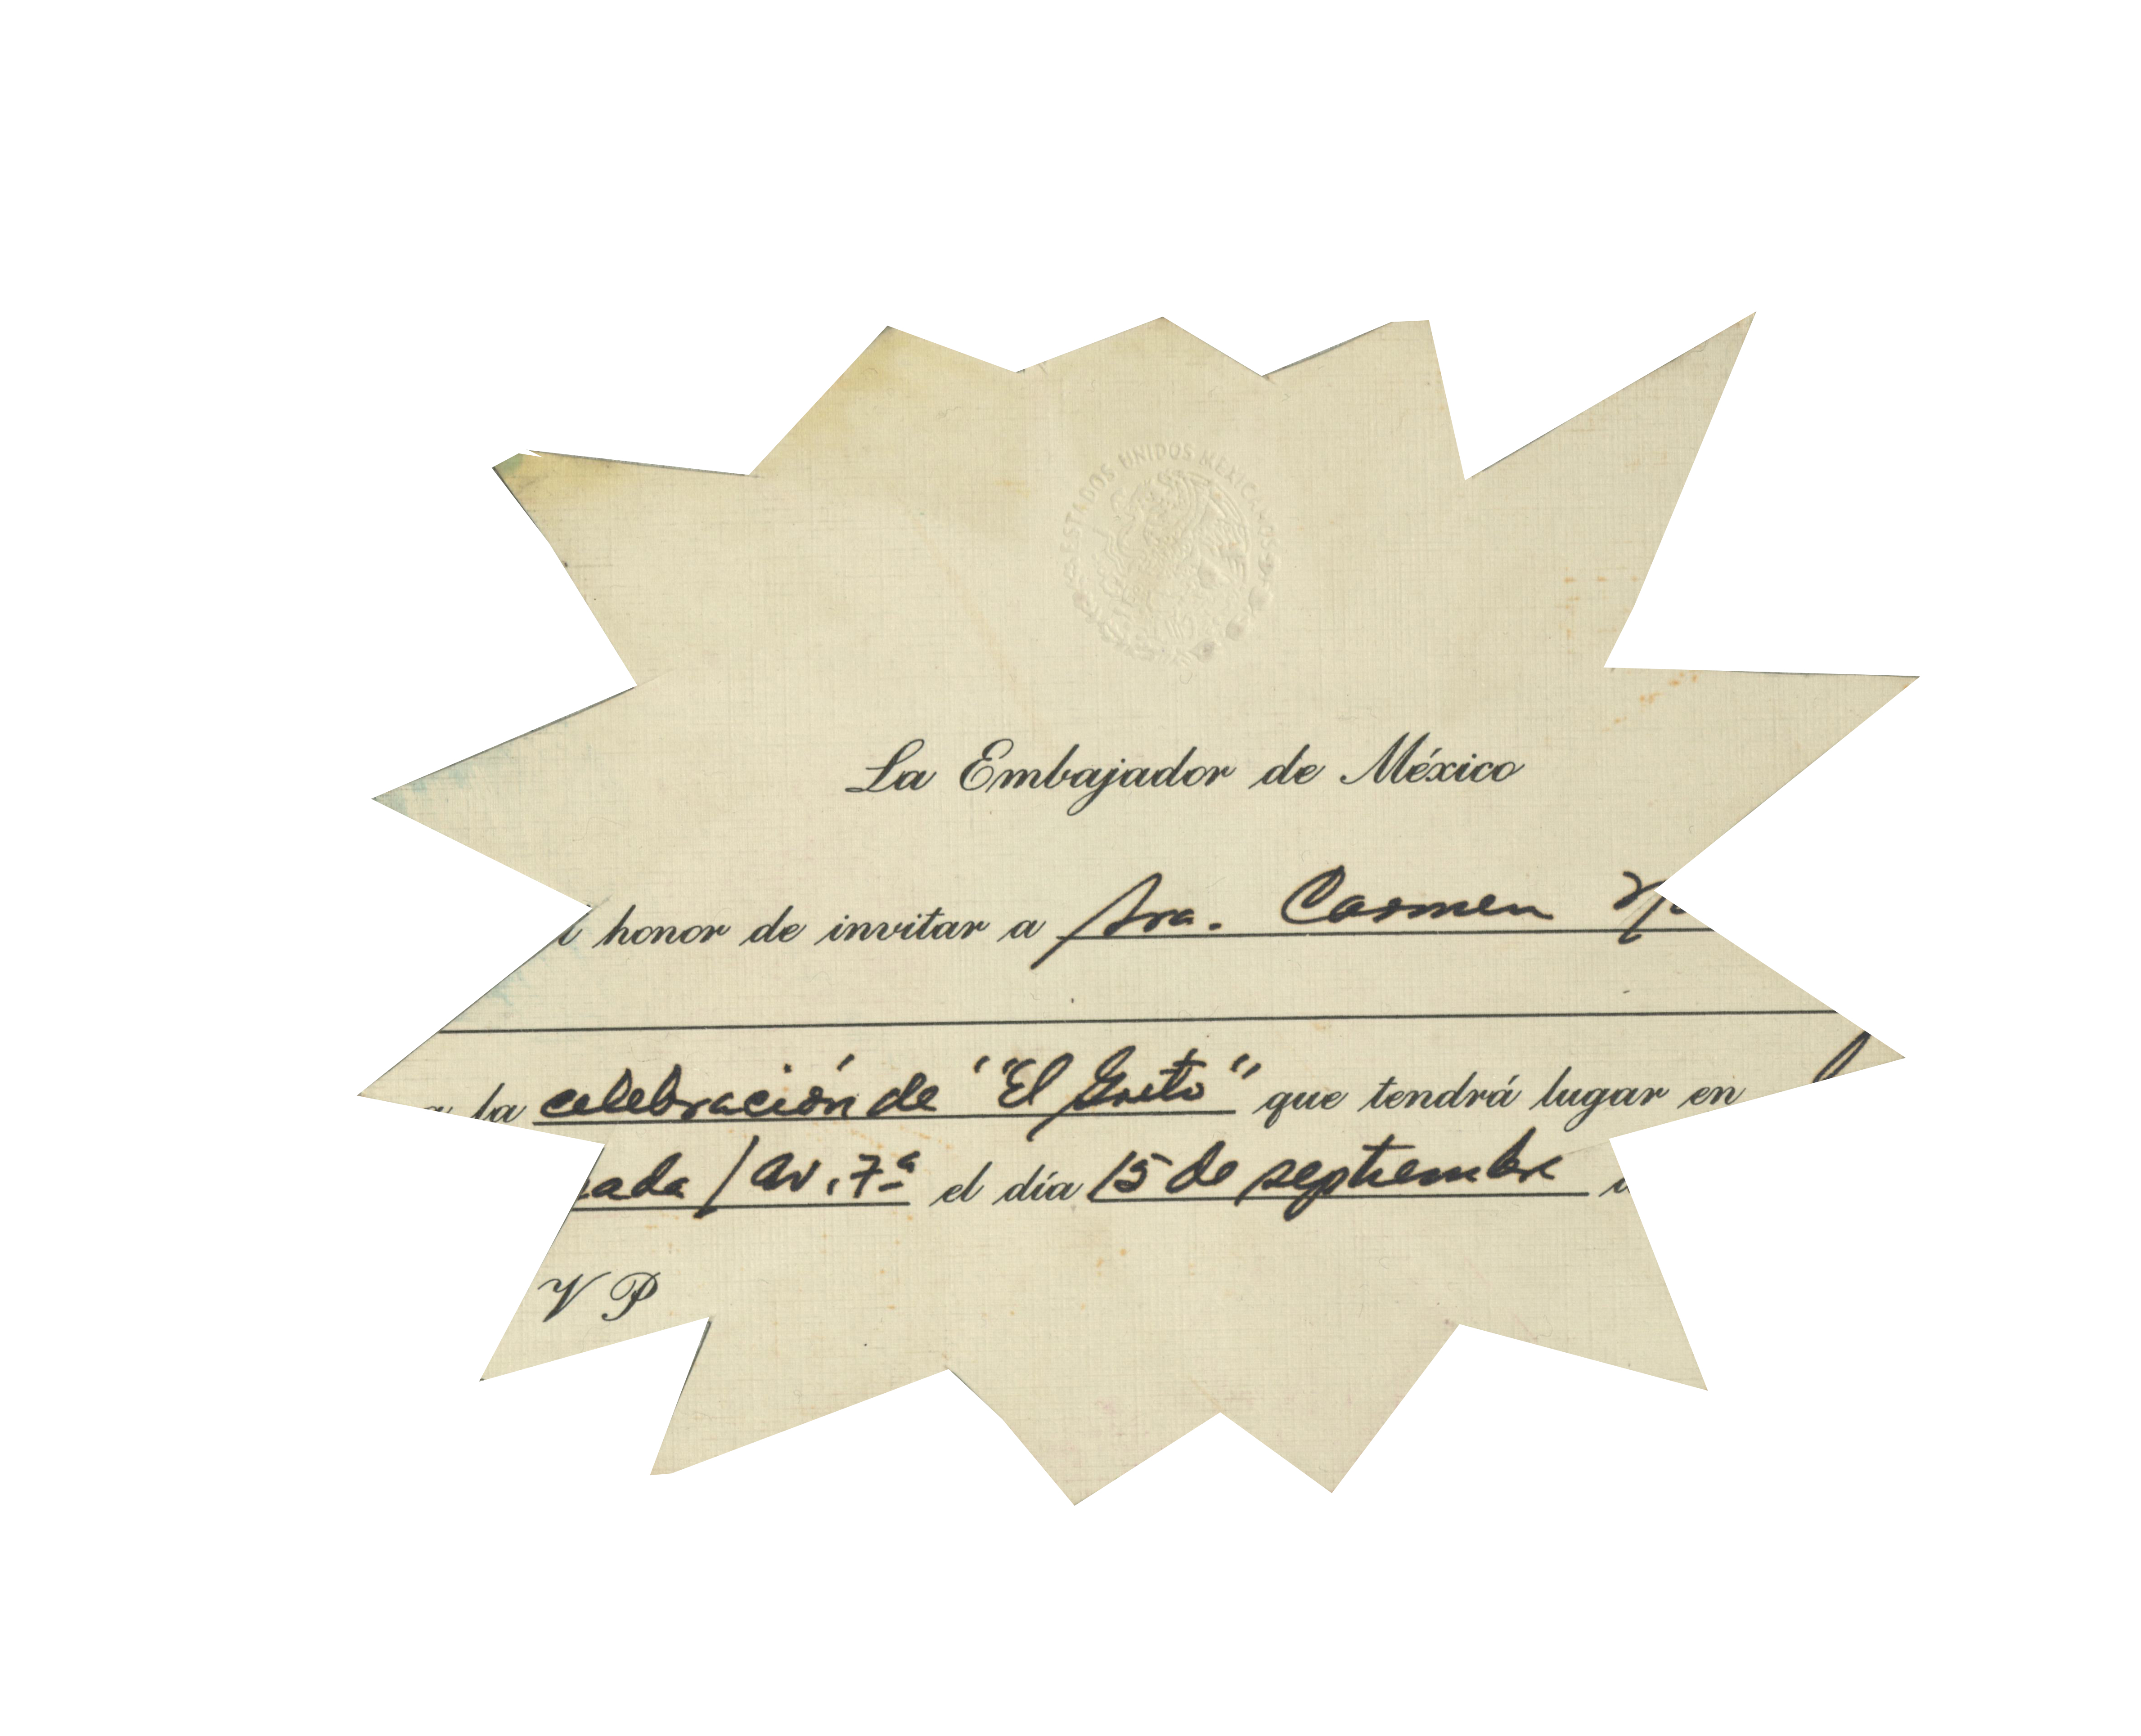 ESTADOS UNIDOS MEXICANOS
La Embajador de México
honor de invitar a Sra. Carmen
la celebración de "El Grito" que tendrá lugar en
el día 15 de septiembre
/ Av. 7ª
V P